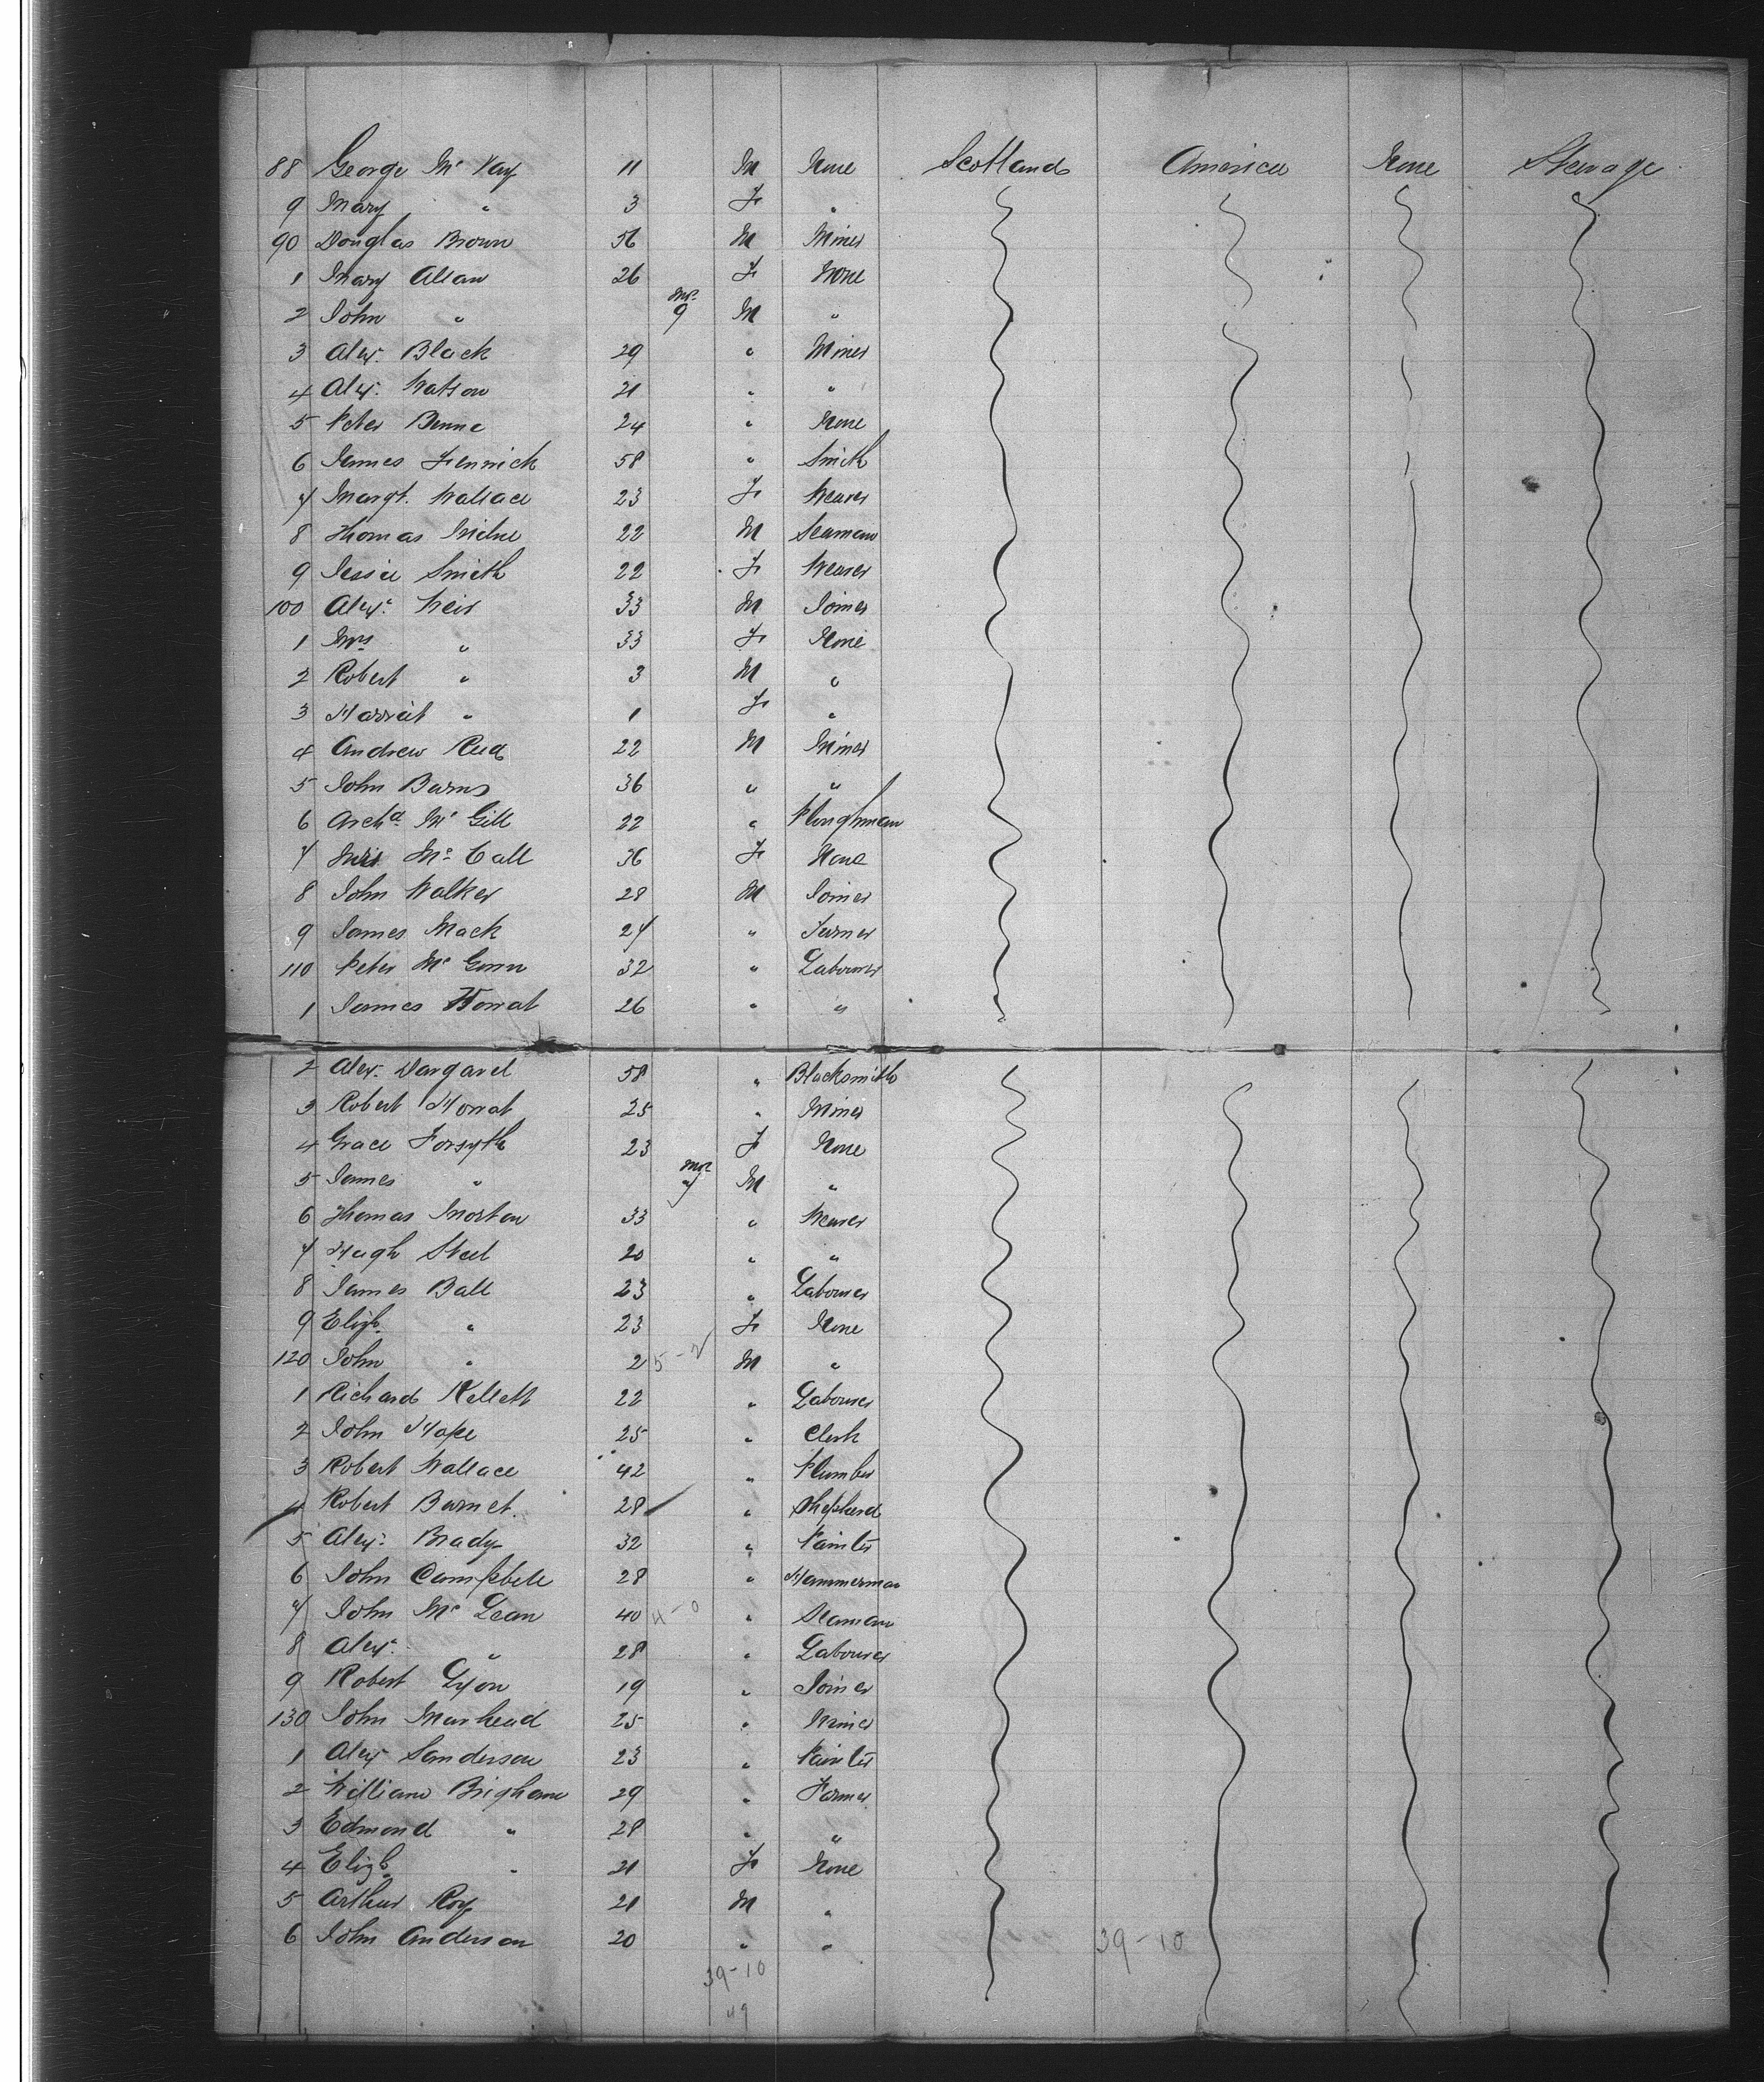 88 George Mc Kay 11 M None Scotland America None Steerage
9 Mary " 3 F "
90 Douglas Brown 56 M Miner
1 Mary Allan 26 F None
2 John " mo. 9 M "
3 Alex. Black 29 " Miner
4 Alex. Watson 21 " "
5 Peter 24 " None
6 James Fenwick 58 " Smith
7 Margt. Wallace 23 F Weaver
8 Thomas Milne 22 M Seaman
9 Jessie Smith 22 F Weaver
100 Alex. Weir 33 M Joiner
1 Mrs " 33 F None
2 Robert " 3 M "
3 Harriet " 1 F "
4 Andrew Reid 22 M Miner
5 John Burns 36 " "
6 Archd. Mc Gill 22 " Ploughman
7 Mrs Mc Call 36 F None
8 John Walker 28 M Joiner
9 James Mack 27 " Turner
110 Peter Mc 32 " Labourer
1 James Howat 26 " "
2 Alex. Dargavel 58 " Blacksmith
3 Robert Howat 25 " Miner
4 Grace Forsyth 23 F None
5 James " mo. 7 M "
6 Thomas Morton 33 " Weaver
7 Hugh Steel 20 " "
8 James Ball 23 " Labourer
9 Elizb. " 23 F None
120 John " 2 5-2 M "
1 Richard Kellett 22 " Labourer
2 John Hope 25 " Clerk
3 Robert Wallace 42 " Plumber
4 Robert Burnet. 28 " Shepherd
5 Alex. Brady 32 " Painter
6 John Campbell 28 " Hammerman
7 John Mc Lean 40 4-0 " Seaman
8 Alex. " 28 " Labourer
9 Robert Lyon 19 " Joiner
130 John Muirhead 25 " Miner
1 Alex Sanderson 23 " Painter
2 William Brigham 29 " Farmer
3 Edmond " 28 " "
4 Elizb. " 21 F None
5 Arthur Roy 21 M "
6 John Anderson 20 " " 39-10
39-10
49